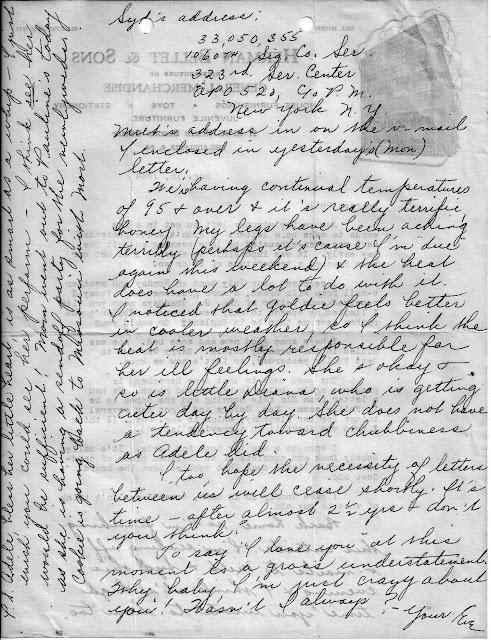 Syd's address:
33,050,355
1060th Sig. Co. Ser.
323rd Ser. Center
APO 520, % P.M.
New York N.Y.
Milt's address in on the v-mail
I enclosed in yesterday's (Mon)
letter.
We're having continual temperatures
of 95 & over & it's really terrific,
honey. My legs have been aching
terribly (perhaps it's cause I'm due
again this weekend) & the heat
does have a lot to do with it.
I noticed that Goldie feels better
in cooler weather, so I think the
heat is mostly responsible for
her ill feelings. She's okay &
so is little Diana, who is getting
cuter day by day. She does not have
a tendency toward chubbiness
as Adele did.
I too, hope the necessity of letters
between us will cease shortly. It's
time - after almost 2 1/2 yrs - don't
you think?
To say "I love you" at this
moment is a gross understatement.
Why, baby, I'm just crazy about
you! Hasn't I always? - Your Eve
P.S. Adele, bless her little heart, is as smart as a whip - I just
wish you could see her perform - I think see her
would be sufficient! Mom went to Pauline's today
as she is having a sendoff party for the newlyweds.
Cookie is going back to with Mort.
HERMAN BALLET & SONS
MERCHANDISE
TOYS STATIONERY
JUVENILE FURNITURE